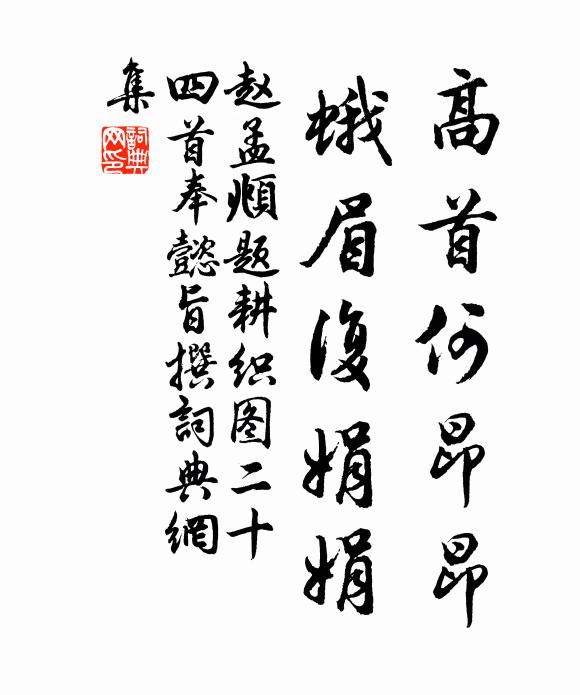 高首何昂昂
蛾眉復娟娟
赵孟頫题耕织图二十
四首奉懿旨撰詞典網
集
詞典網印